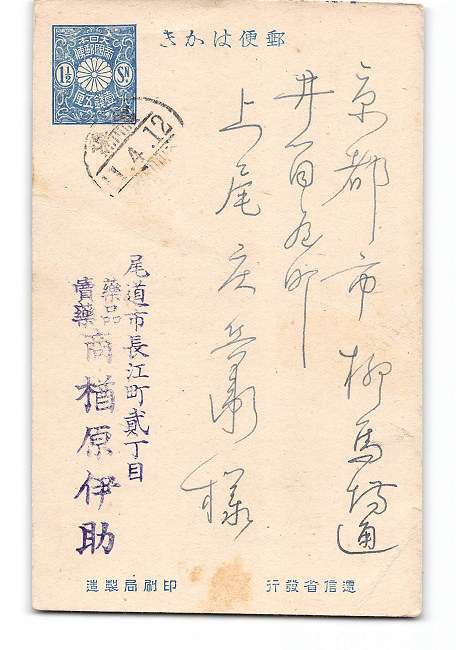 郵便はかき
大日本
帝國郵便
壹錢五厘
1½ SN
11.4.12
京都市柳馬場通
井百屋町
上尾庄兵衛様
尾道市長江町貳丁目
藥品
賣藥
商楢原伊助
逓信省發行
印刷局製造